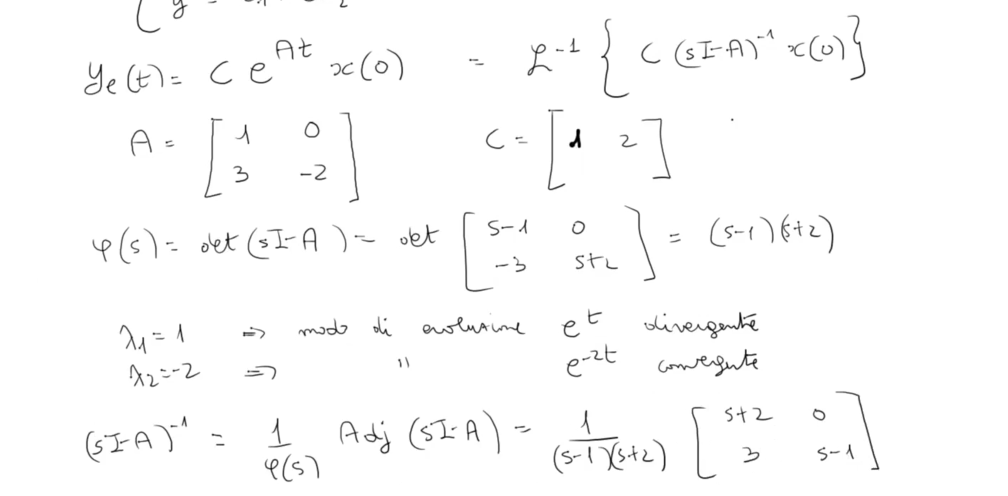 y_e(t) = C e^{At} x(0) = ℒ^{-1} { C (sI-A)^{-1} x(0) }
A = [ 1 0 ; 3 -2 ] C = [ 1 2 ]
φ(s) = det(sI-A) = det [ s-1 0 ; -3 s+2 ] = (s-1)(s+2)
λ_1 = 1 ⇒ modo di evoluzione e^t divergente
λ_2 = -2 ⇒ " e^{-2t} convergente
(sI-A)^{-1} = 1/φ(s) Adj (sI-A) = 1/((s-1)(s+2)) [ s+2 0 ; 3 s-1 ]